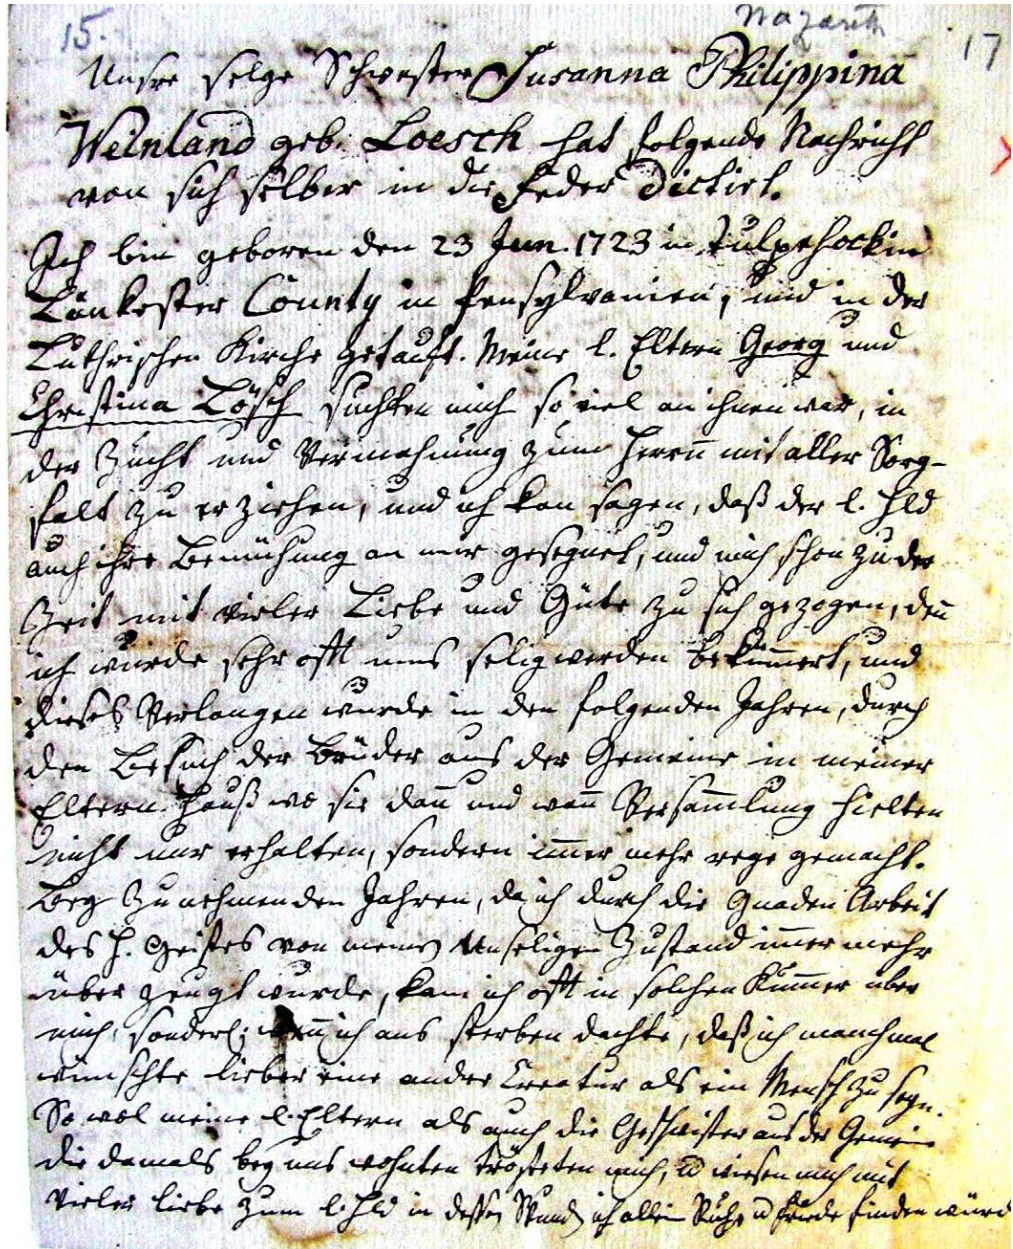 15.
Nazareth
17
Unsre selge Schwester Susanna Philippina
Weinland geb. Loesch hat folgende Nachricht
von sich selber in die Feder dictirt.
Ich bin geboren den 23 Jan. 1723 in Tulpehockin
Länkester County in Pensylvanien, und in der
Luthrischen Kirche getauft. Meine l. Eltern Georg und
Christina Lösch suchten mich so viel an ihnen war, in
der Zucht und Vermahnung zum Herrn mit aller Sorg-
falt zu erziehen, und ich kan sagen, daß der l. Hld
auch ihre Bemühung an mir gesegnet, und mich schon zu der
Zeit mit vieler Liebe und Güte zu sich gezogen, den̄
ich wurde sehr offt ums selig werden bekümmert, und
dieses Verlangen wurde in den folgenden Jahren, durch
den Besuch der Brüder aus der Gemeine in meiner
Eltern Hauß wo sie dan̄ und wan̄ Versam̄lung hielten
nicht nur erhalten, sondern im̄er mehr rege gemacht.
Bey zunehmenden Jahren, da ich durch die Gnaden Arbeit
des H. Geistes von meinem Unseligen Zustand im̄er mehr
über zeugt wurde, kam ich offt in solchen Kum̄er über
mich, sonderl. wen̄ ich ans sterben dachte, daß ich manchmal
wünschte lieber eine andre Creatur als ein Mensch zu seyn.
So wol meine l. Eltern als auch die Geschwister aus der Gemein
die damals bey uns wohnten trösteten mich, u wiesen mich mit
vieler liebe zum l. Hld in deßen Wunden ich allein Ruhe u friede finden würd